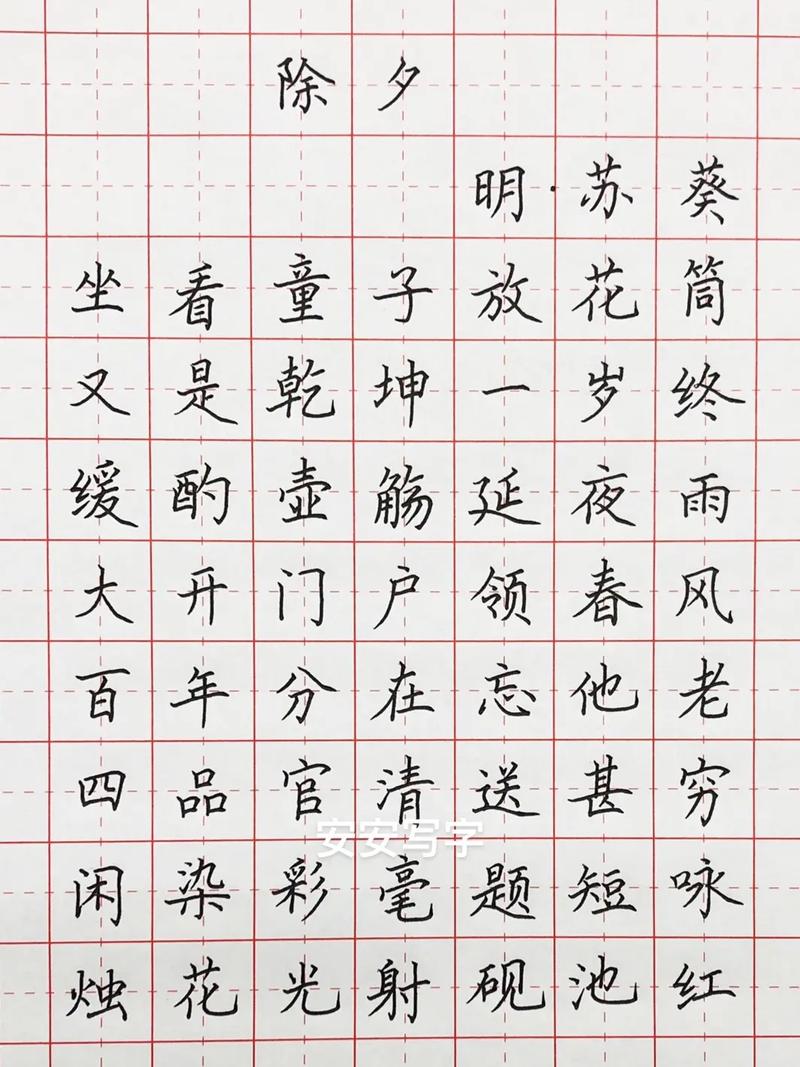 除夕
明·苏葵
坐看童子放花筒
又是乾坤一岁终
缓酌壶觞延夜雨
大开门户领春风
百年分在忘他老
四品官清送甚穷
安安写字
闲染彩毫题短咏
烛花光射砚池红